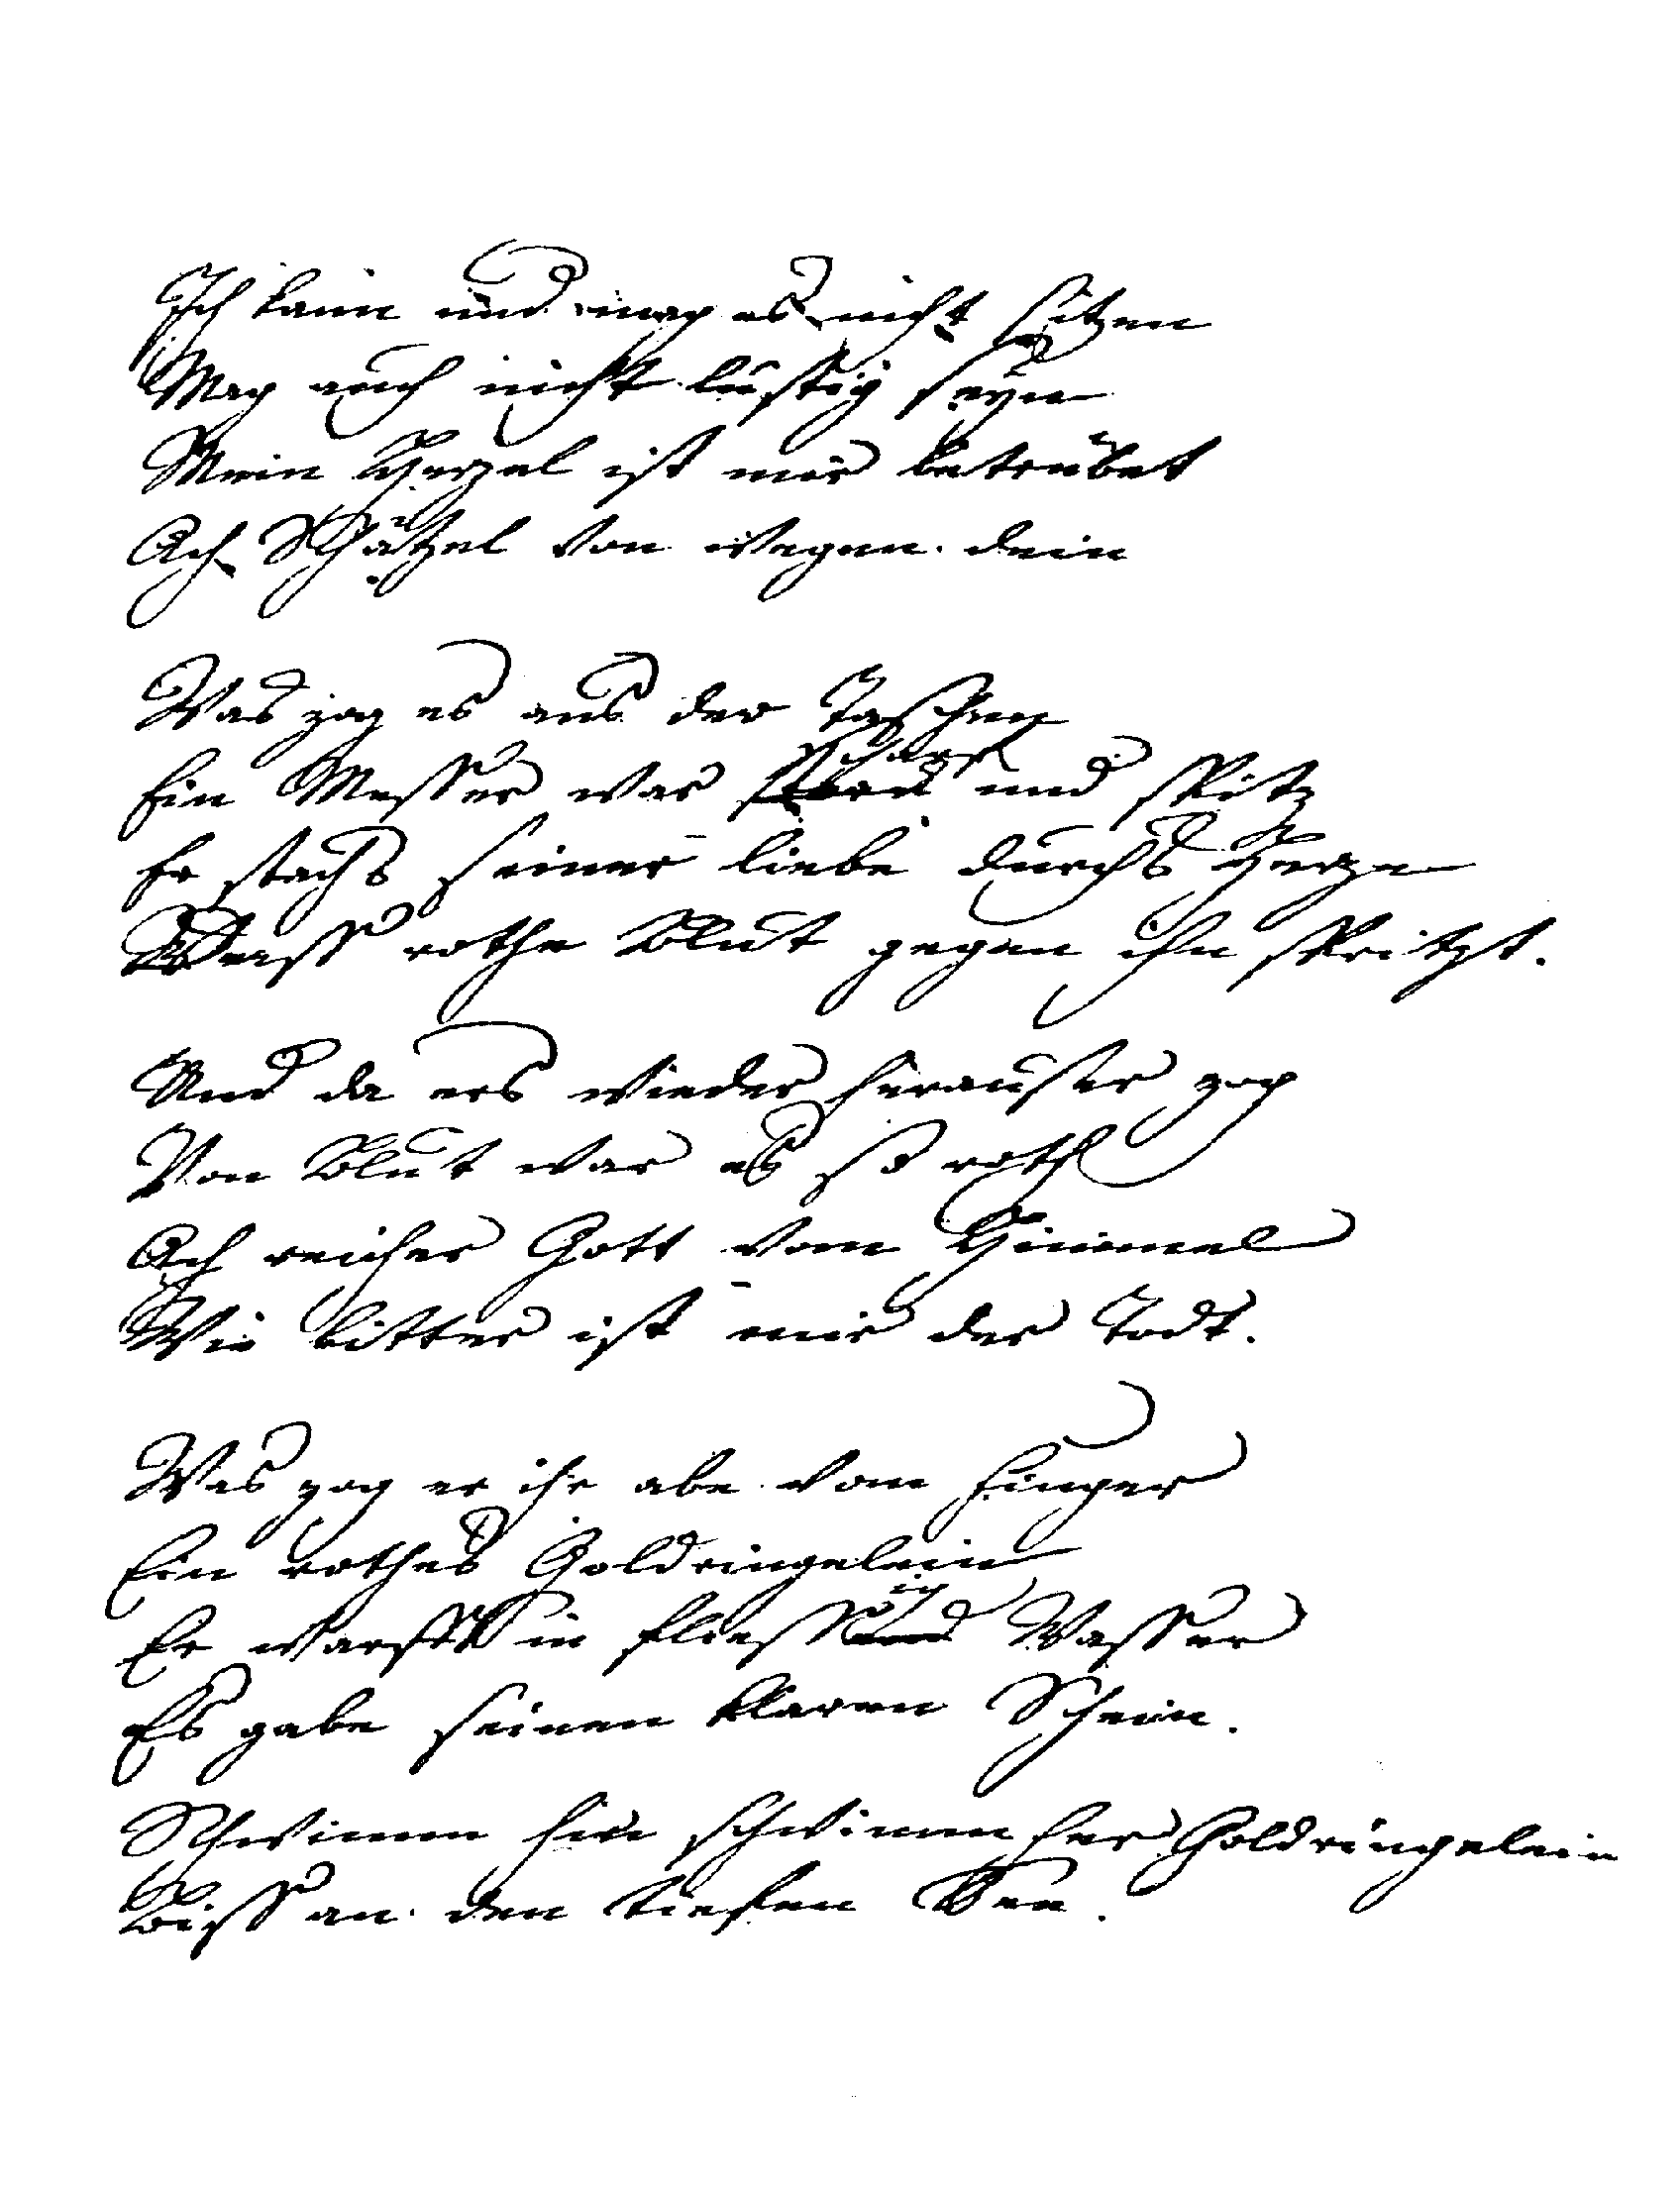 Ich kann und mag es nicht sitzen
Mag auch nicht lustig seyn
Mein Herzel ist mir betrübet
Ach Schätzel von wegen dein
Was zog es aus der Taschen
Ein Messer war scharf und spitz
Er stachs seiner liebe durchs Herze
Dass rothe Blut gegen ihn spritzt.
Und da ers wieder herauser zog
Von Blut war es so roth
Ach reicher Gott vom Himmel
Wie bitter ist mir der Todt.
Was zog er ihr abe vom Finger
Ein rothes Goldringelein
Er warfs in fliessig Wasser
Es gabe seinen klaren Schein.
Schwimm hin schwimm her Goldringelein
Biss an den tiefen See.